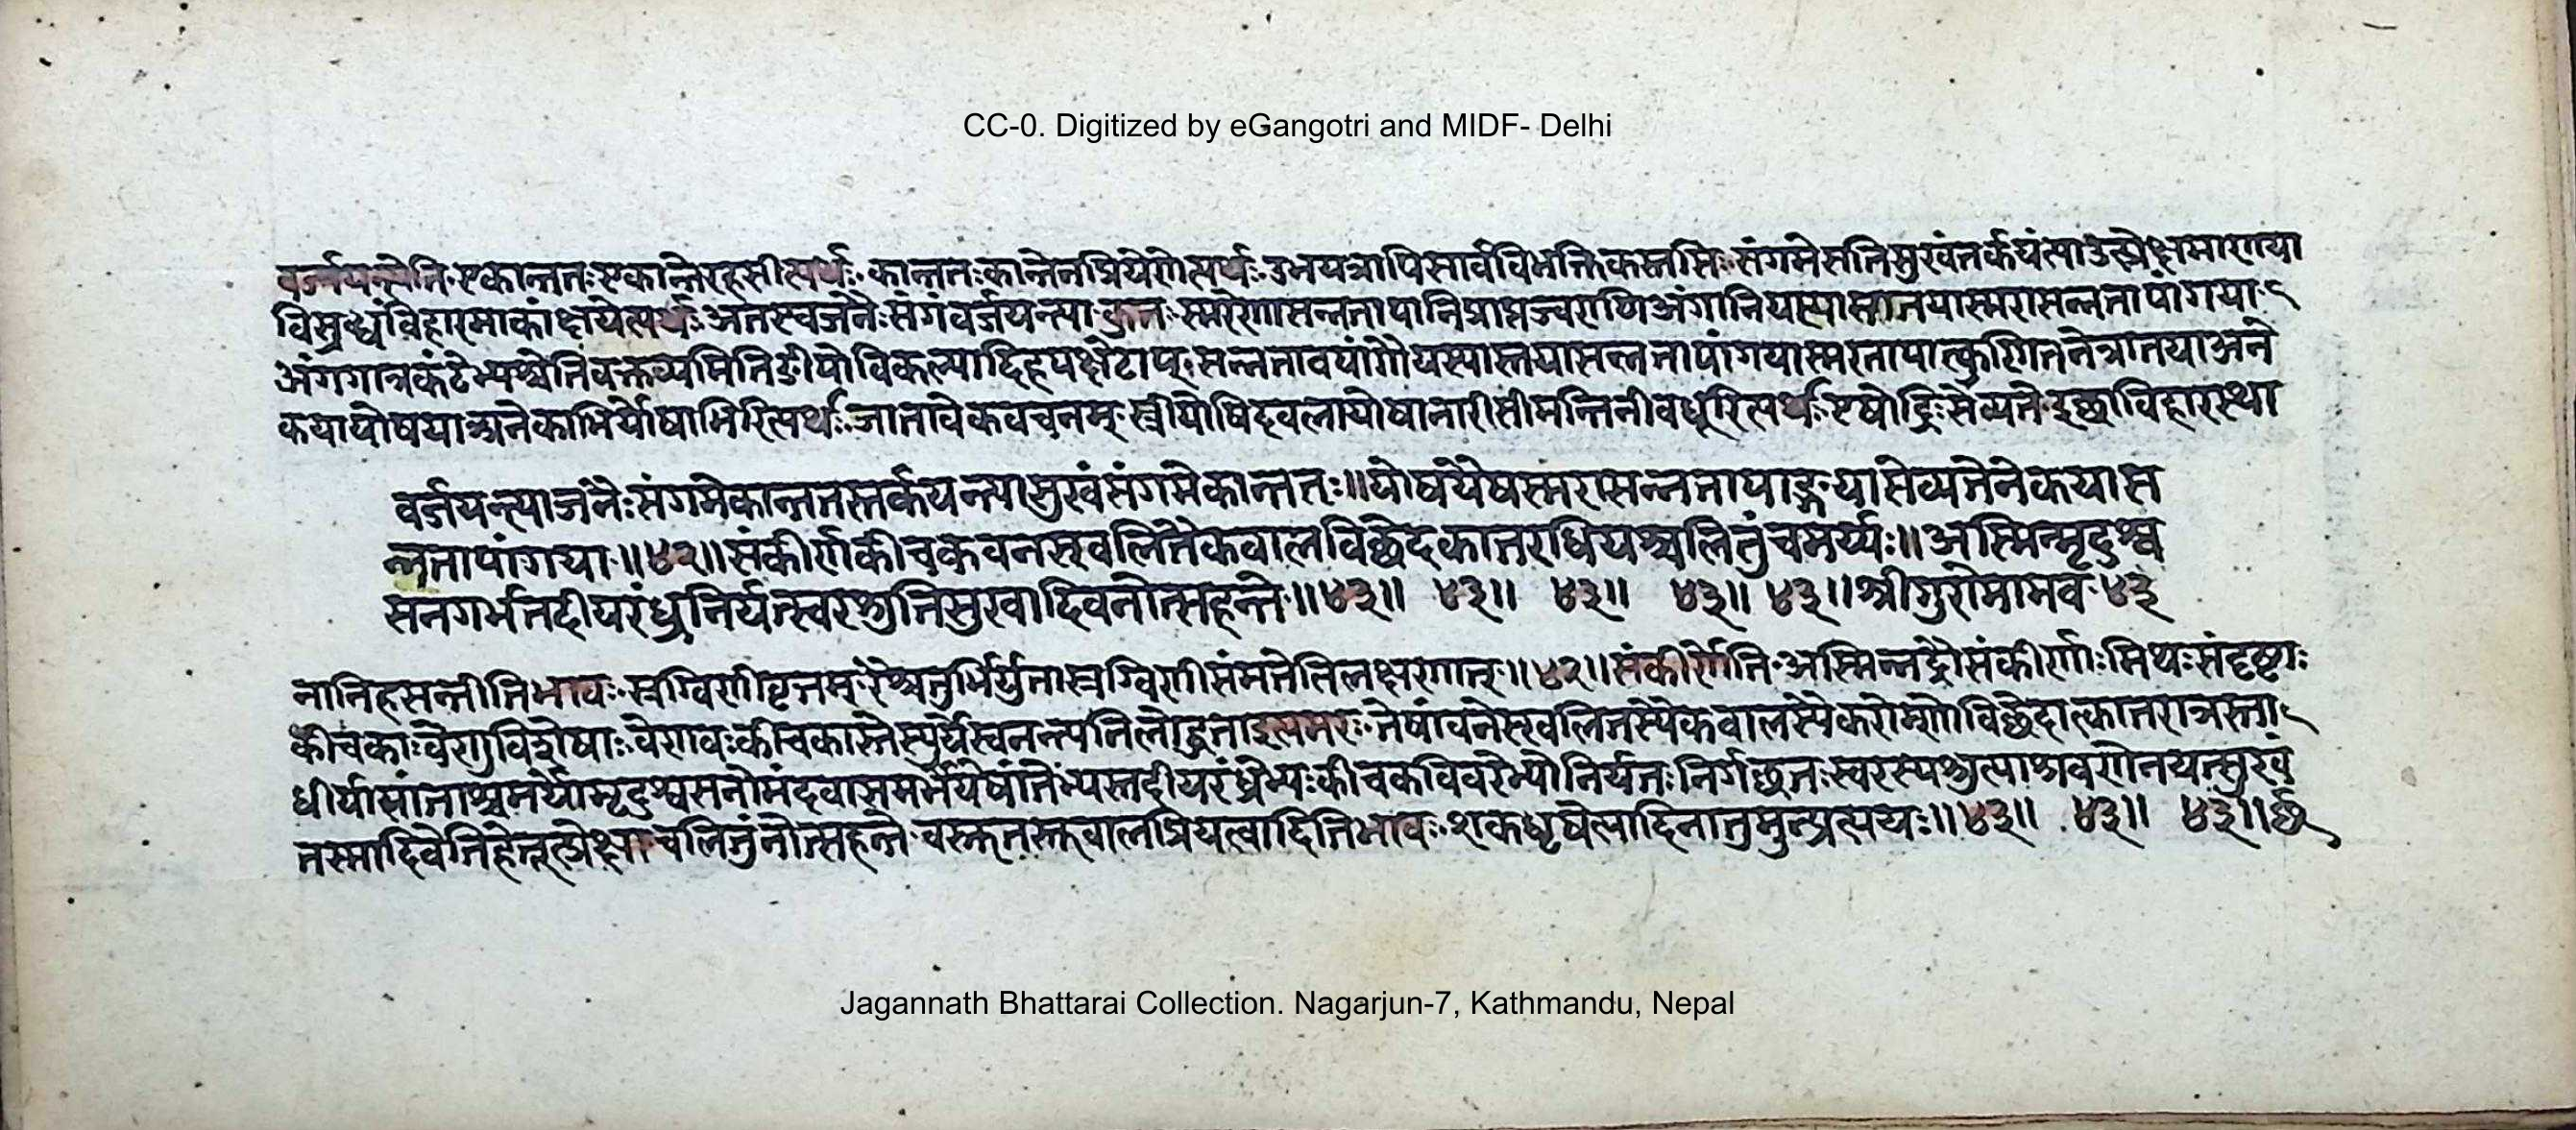 CC-0. Digitized by eGangotri and MIDF- Delhi
वर्जयन्त्येति एकान्ततः एकान्ते रहसीत्यर्थः कान्ततः कान्तेन प्रियेणेत्यर्थः उभयत्रापि सार्वविभक्तिकस्तसिः संगमे सति सुखं तर्कयंत्या उत्प्रेक्षमाणया
विस्रब्धं विहारमाकांक्षयेत्यर्थः अतएव जनैः संगं वर्जयन्त्या कुतः स्मरेणासन्नतापानि प्राप्तज्वराणि अंगानि यस्यास्तया स्मरासन्नतापांगया
अंगगात्रकंठेभ्यश्चेति वक्तव्यमिति ङीपो विकल्पादिह पक्षे टाप् सन्नतावपांगौ यस्यास्तया सन्नतापांगया स्मरतापात्कुणितनेत्रांतया अने
कया योषया अनेकाभिर्योषाभिरित्यर्थः जातावेकवचनम् स्त्री योषिदवला योषा नारी सीमन्तिनी वधूरित्यर्थः एषोद्रिः सेव्यते इछाविहारस्था
वर्जयन्त्या जनैः संगमेकान्ततस्तर्कयन्त्या सुखं संगमे कान्ततः॥ योषयैष स्मरासन्नतापाङ्गया सेव्यतेनेकया स
न्नतापांगया॥४२॥ संकीर्णकीचकवनस्खलितैकवालविछेदकातरधियश्चलितुं चमर्य्यः॥ अस्मिन्मृदुश्व
सनगर्भतदीयरंध्रनिर्यत्स्वरश्रुतिसुखादिव नोत्सहन्ते॥४३॥ ४३॥ ४३॥ ४३॥ ४३॥ श्रीगुरोमामव ४३
नानिह सन्तीति भावः स्रग्विणीवृत्तम् रैश्चतुर्भिर्युता स्रग्विणी संमतेति लक्षणात्॥४२॥ संकीर्णेति अस्मिन्नद्रौ संकीर्णाः मिथः संदृष्टाः
कीचकाः वेणुविशेषाः वेणवः कीचकास्ते स्युर्ये स्वनन्त्यनिलोद्धता इत्यमरः तेषां वने स्खलितस्यैकवालस्यैकरोम्णो विछेदात्कातरा त्रस्ता
धीर्यासां ताश्चमर्यो मृदुश्वसनो मंदवातस गर्भे येषां तेभ्यस्तदीयरंध्रेभ्यः कीचकविवरेभ्यो निर्यतः निर्गछतः स्वरस्य श्रुत्या श्रवणेन यत्सुखं
तस्मादिवेति हेतूत्प्रेक्षा चलितुं नोत्सहन्ते वस्तुतस्तु वालप्रियत्वादिति भावः शकधृषेत्यादिना तुमुन्प्रत्ययः॥४३॥ ४३॥ ४३॥
Jagannath Bhattarai Collection. Nagarjun-7, Kathmandu, Nepal